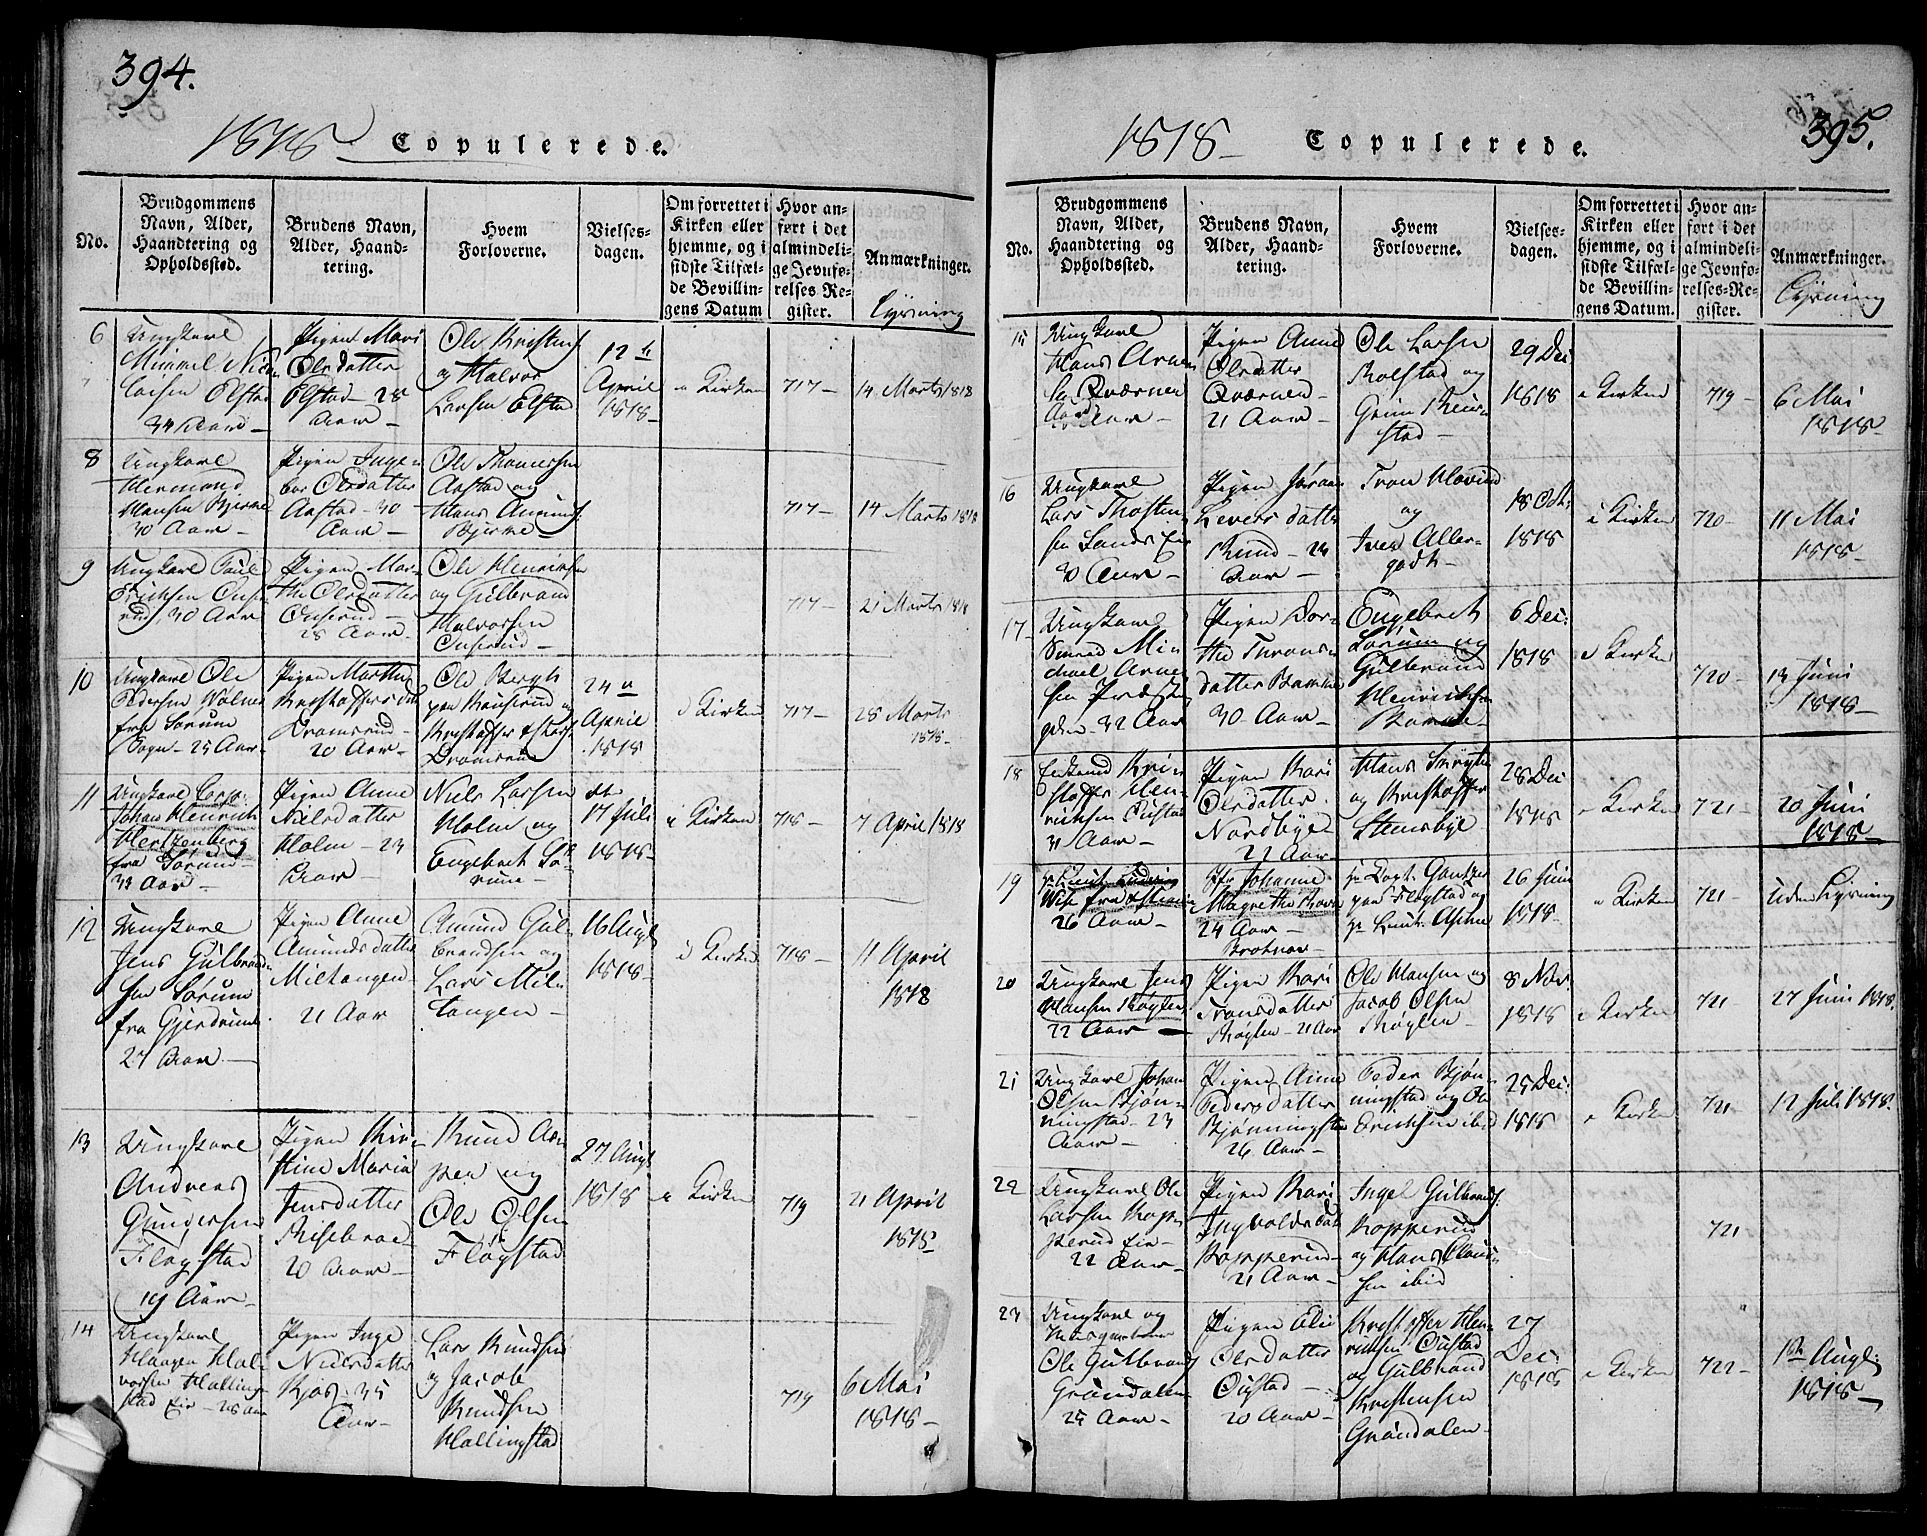 394.
1818 Copulerede.
No.
Brudgommens
Navn, Alder,
Haandtering og
Opholdssted.
Brudens Navn,
Alder, Haand-
tering.
Hvem
Forloverne.
Vielses-
dagen.
Om forrettet i
Kirken eller
hjemme, og i
sidste Tilfæl-
de Bevillin-
gens Datum
Hvor an-
ført i det
almindeli-
ge Jevnfø-
relses Re-
gister.
Anmærkninger.
Lysning
6
Ungkarl
Mimmel
Olstad
34 Aar
Pigen Mari
Olsdatter
Olstad 28
Aar
Ole Kristens.
og Halvor
Larsen Elstad
12te
April
1818
i Kirken
717
14 Marts 1818
8
Ungkarl
Hermand
Hansen Bjerke
30 Aar
Pigen Inge-
bor Olsdatter
Aastad 30
Aar
Ole Thomessen
Aastad og
Hans Amunds.
Bjerke
717
14 Marts 1818
9
Ungkarl Poul
Eriksen
30 Aar
Pigen Mar-
the Olsdatter
28 Aar
Ole Henriksen
og Gulbrand
Halvorsen
717
21 Marts 1818
10
Ungkarl Ole
Pedersen
fra Sørum
Sogn 25 Aar
Pigen Marthe
Kristoffersdat
20 Aar
Ole Bergh
paa og
Kristoffer
24de
April
1818
i Kirken
717
28 Marts
1818
11
Ungkarl Corp.
Johan Heinrich
Hertzenberg
fra Sørum
Aar
Pigen Anne
Nielsdatter
Holm 23
Aar
Niels Larsen
Holm og
Engebret Sø-
rum
17 Juli
1818
i Kirken
718
7 April 1818
12
Ungkarl
Jens Gulbrand-
sen Sørum
fra Gjerdrum
27 Aar
Pigen Anne
Amundsdatter
Miltangen
21 Aar
Amund Gul-
brandsen og
Lars Mil-
tangen
16 Augt
1818
i Kirken
718
11 April
1818
13
Ungkarl
Andreas
Gundersen
Fløgstad
Aar
Pigen Kir-
stine Maria
Jensdatter
Risebroe
20 Aar
Knud As-
per og
Ole Olsen
Fløgstad
27 Augt
1818
i Kirken
719
21 April
1818
14
Ungkarl
Haagen Hal-
vorsen Halling-
stad Eie 28 Aar
Pigen Inge
Nielsdatter
Kjos 35
Aar
Lars Knudsen
og Jacob
Knudsen
Hallingstad
719
6 Mai
1818
395.
1818 Copulerede.
No.
Brudgommens
Navn, Alder,
Haandtering og
Opholdssted.
Brudens Navn,
Alder, Haand-
tering.
Hvem
Forloverne.
Vielses-
dagen.
Om forrettet i
Kirken eller
hjemme, og i
sidste Tilfæl-
de Bevillin-
gens Datum.
Hvor an-
ført i det
almindeli-
ge Jevnfø-
relses Re-
gister.
Anmærkninger.
Lysning
15
Ungkarl
Hans Arne-
sen Qværnen
Aar
Pigen Anne
Olsdatter
Qværnen
21 Aar
Ole Larsen
Rolstad og
Grim
29 Dec
1818
i Kirken
719
6 Mai
1818
16
Ungkarl
Lars Thosten-
sen Sands Eie
30 Aar
Pigen
Siversdatter
Rund 24
Aar
Tron Hovind
og
Iver Aller-
godt
18 Oct:
1818
i Kirken
720
11 Mai
1818
17
Ungkarl
Mi-
chael Arne-
sen Præste-
32 Aar
Pigen Dor-
the
datter
30 Aar
Engebret
Sørum og
Gulbrand
Henriksen
6 Dec:
1818
i Kirken
720
13 Juni
1818
18
Enkemd Kri-
stoffer Hen-
riksen Oustad
31 Aar
Pigen Kari
Olsdatter
Nordbye
22 Aar
Hans
og Kristoffer
Stensbye
28 Dec
1818
i Kirken
721
20 Juni
1818
19
26 Aar
Jfr Johanne
Magrethe
24 Aar
Hr Capt.
paa Fløgstad og
Hr Lieut.
26 Juni
1818
i Kirken
721
uden Lysning
20
Ungkarl Jens
Hansen Røglen
22 Aar
Pigen Kari
Tronsdatter
Røglen 21 Aar
Ole Hansen og
Jacob Olsen
Røglen
8 Nov:
1818
i Kirken
721
27 Juni 1818.
21
Ungkarl Johan
Olsen Bjøn-
ningstad 23
Aar
Pigen Anne
Pedersdatter
Bjønningstad
26 Aar
Peder Bjøn-
ningstad og Ole
Eriksen ibid
25 Dec:
1818
i Kirken
721
12 Juli 1818.
22
Ungkarl Ole
Larsen Kop-
perud Eie
22 Aar
Pigen Kari
Kopperud
21 Aar
Ingel Gulbrands.
Kopperud
og Hans
sen ibid
721
23
Ungkarl og
Ole Gulbrands
Grøndalen
25 Aar
Pigen Elie
Olsdatter
Oustad
20 Aar
Kristoffer Hen-
riksen Oustad
og Gulbrand
Kristensen
Grøndalen
27
Dec:
1818
i Kirken
722
1ste Aug:
1818